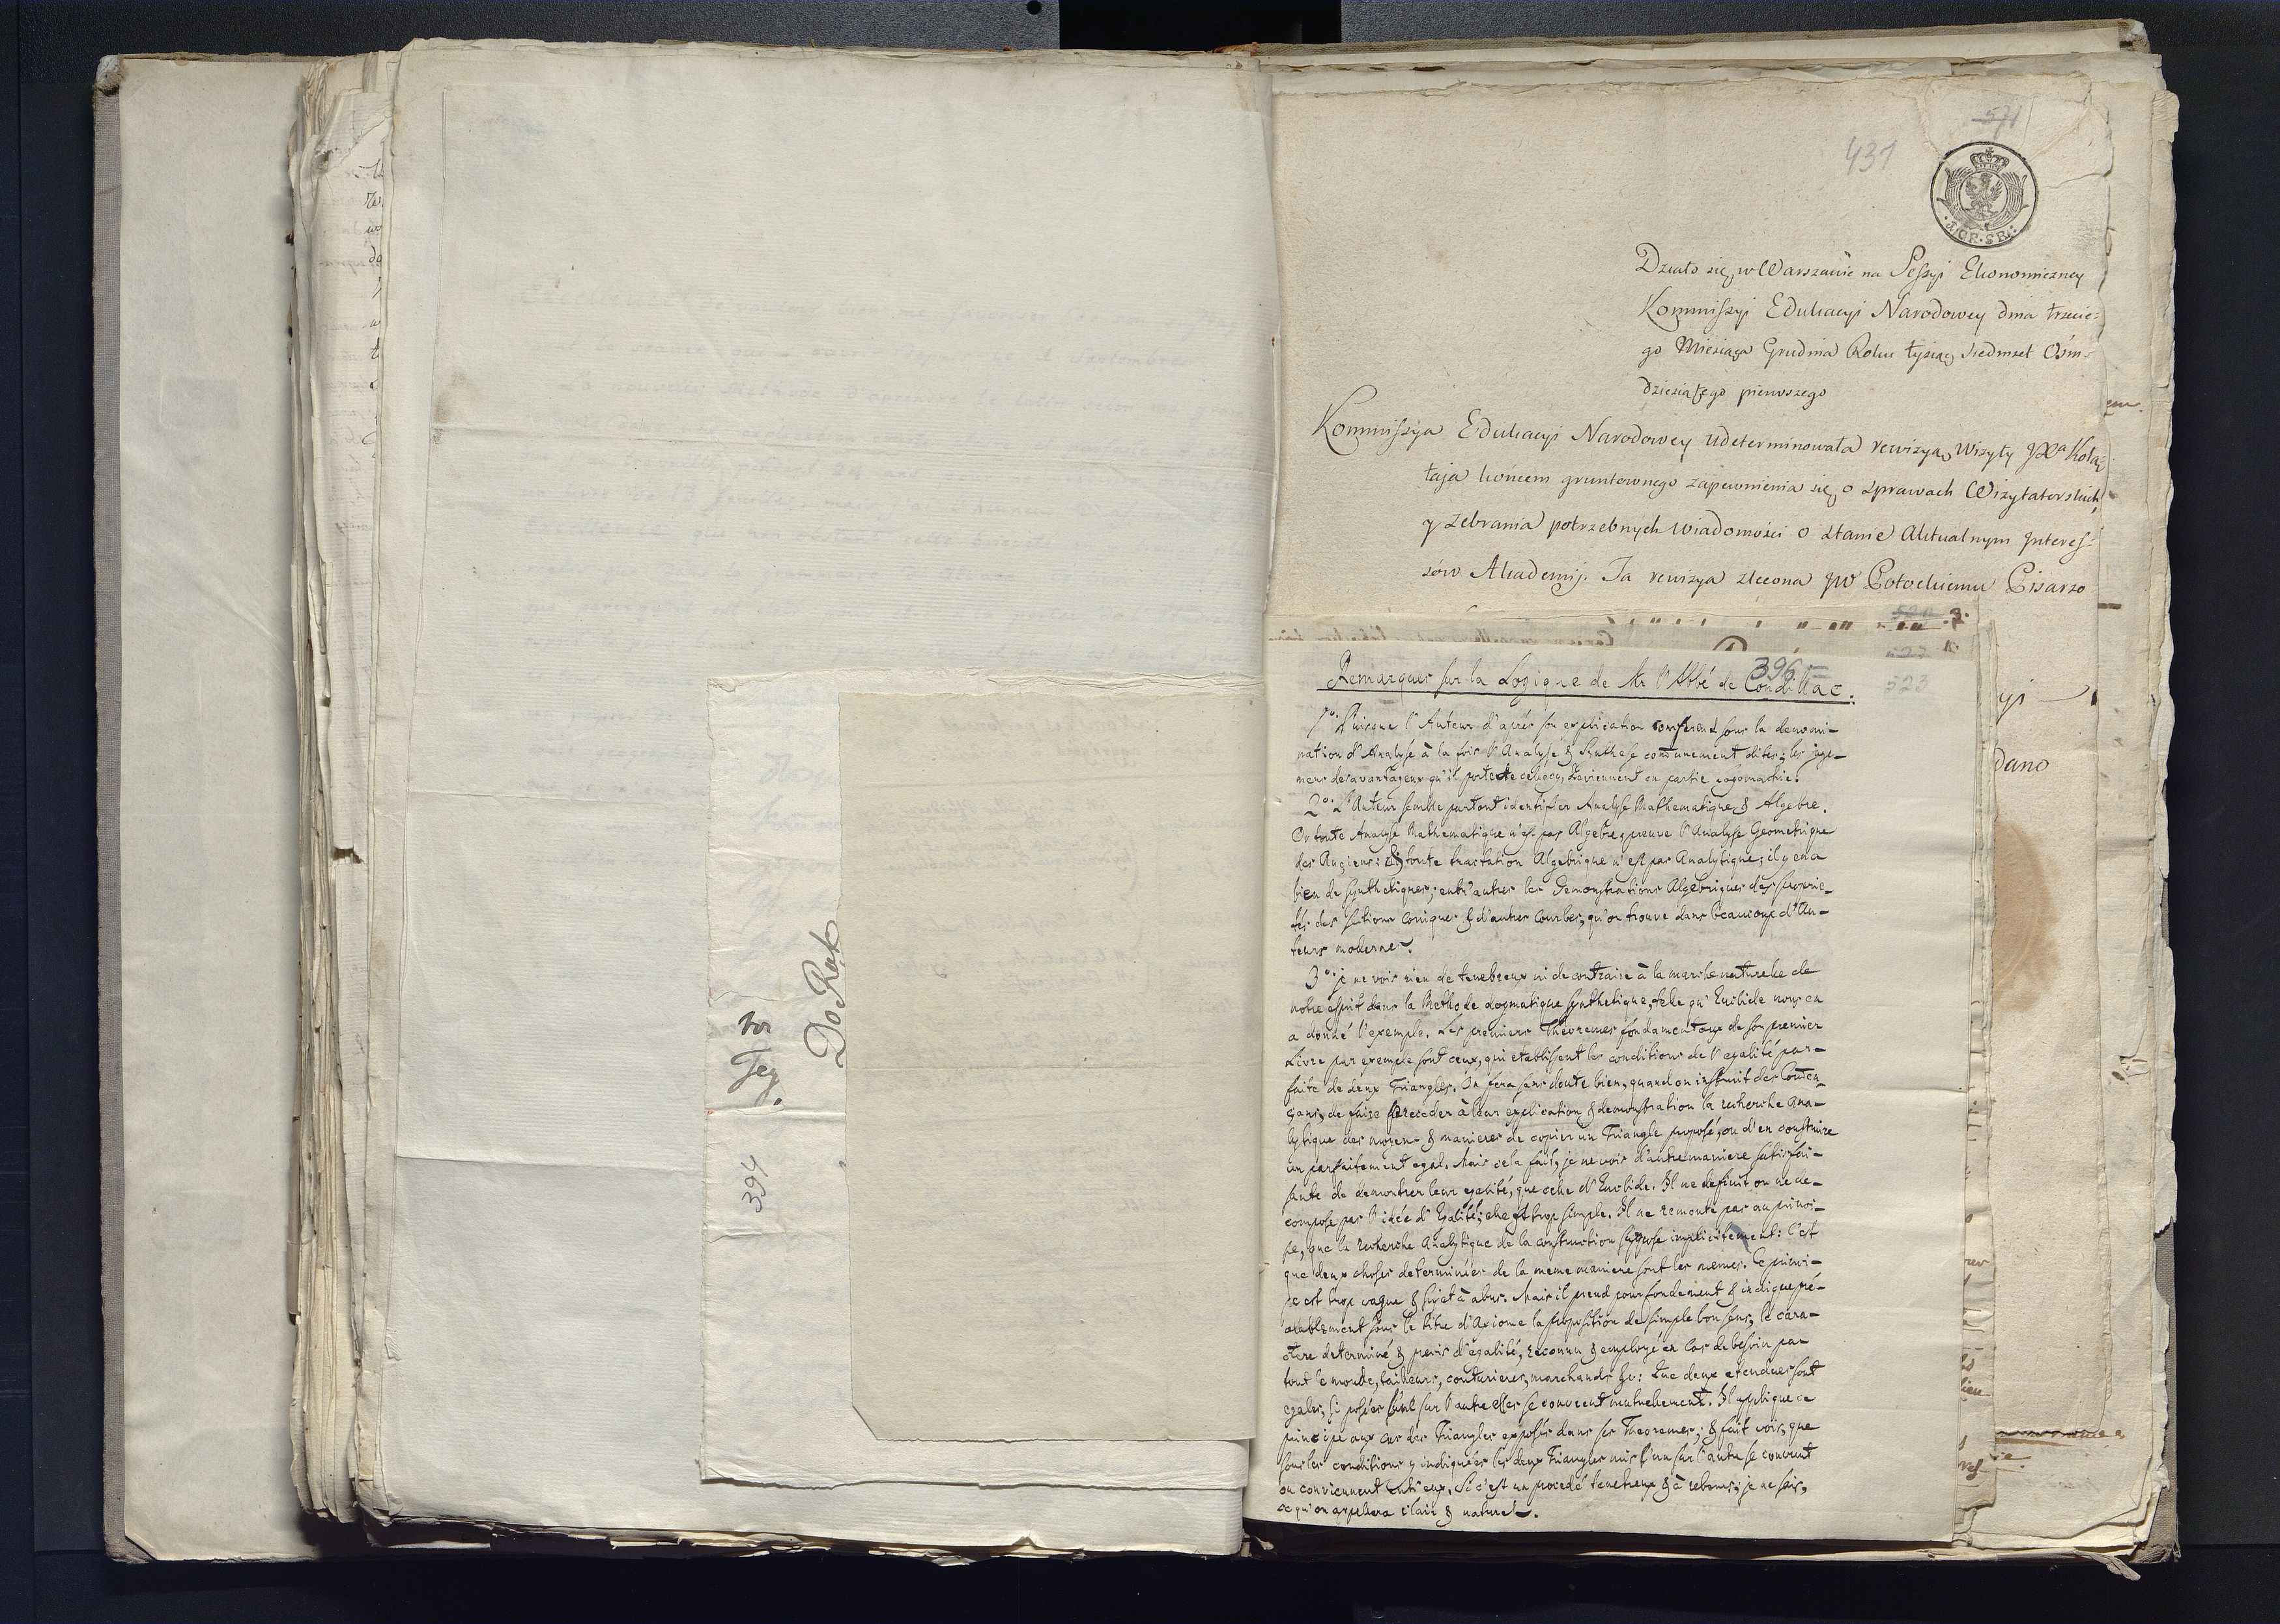 Do Rok
394
571
431
Działo się w Warszawie na Seßyi Ekonomiczney
Kommißyi Edukacyi Narodowey dnia trzecie-
go Miesiąca Grudnia Roku tysiąc siedmset Ośm-
dziesiątego pierwszego
Kommißya Edukacyi Narodowey udeterminowała rewizyą Wizyty JXa Kołłą-
taja końcem gruntownego zapewnienia się o sprawach Wizytatorskich,
y zebrania potrzebnych wiadomości o stanie Aktualnym Interes-
sów Akademij. Ta rewizya zlecona JW Potockiemu Pisarzo
523
396
Remarques sur la Logique de Mr l'Abbé de Condillac.
1º. Puisque l'Auteur d'après son explication comprend sous la denomi-
nation d'Analyse à la fois l'Analyse & Synthese communement dites; les juge-
mens desavantageux qu'il porte de celle cy, deviennent en partie logomachie.
2º. L'Auteur semble partout identifier Analyse Mathematique, & Algebre.
Or toute Analyse Mathematique n'est pas Algebre; preuve l'Analyse Geometrique
des Anciens: & toute tractation Algebrique n'est pas Analytique; il y en a
bien de Synthetiques; entr'autres les Demonstrations Algebriques des proprie-
tés des sections coniques & d'autres Courbes, qu'on trouve dans beaucoup d'Au-
teurs modernes.
3º. je ne vois rien de tenebreux ni de contraire à la marche naturelle de
notre esprit dans la Methode dogmatique synthetique, telle qu'Euclide nous en
a donné l'exemple. Les premiers Theoremes fondamentaux de son premier
Livre par exemple sont ceux, qui etablissent les conditions de l'egalité par-
faite de deux Triangles. On fera sans doute bien, quand on instruit des Commen-
çans, de faire preceder à leur explication & demonstration la recherche ana-
lytique des moyens & manieres de copier un Triangle proposé, ou d'en construire
un parfaitement egal. Mais cela fait, je ne vois d'autre maniere satisfai-
sante de demontrer leur egalité, que celle d'Euclide. Il ne definit ou ne de-
compose pas l'idée d'Egalité; elle est trop simple. Il ne remonte pas au princi-
pe, que la recherche Analytique de la construction suppose implicitement: c'est
que deux choses determinées de la meme maniere sont les memes. Ce princi-
pe est trop vague & sujet à abus. Mais il prend pour fondement & indique pré-
alablement sous le titre d'Axiome la proposition de simple bon sens, le cara-
ctere determiné & precis d'egalité, reconnu & employé en cas de besoin par
tout le monde, tailleurs, couturieres, marchands &c: Que deux etendues sont
egales, si posées l'une sur l'autre elles se couvrent mutuellement. Il applique ce
principe aux cas des Triangles exposés dans ses Theoremes; & fait voir, que
sous les conditions y indiquées les deux Triangles mis l'un sur l'autre se couvrent
ou conviennent entr'eux. Si c'est un procedé tenebreux & à rebours, je ne sais,
ce qu'on appellera clair & naturel.
yi
dano